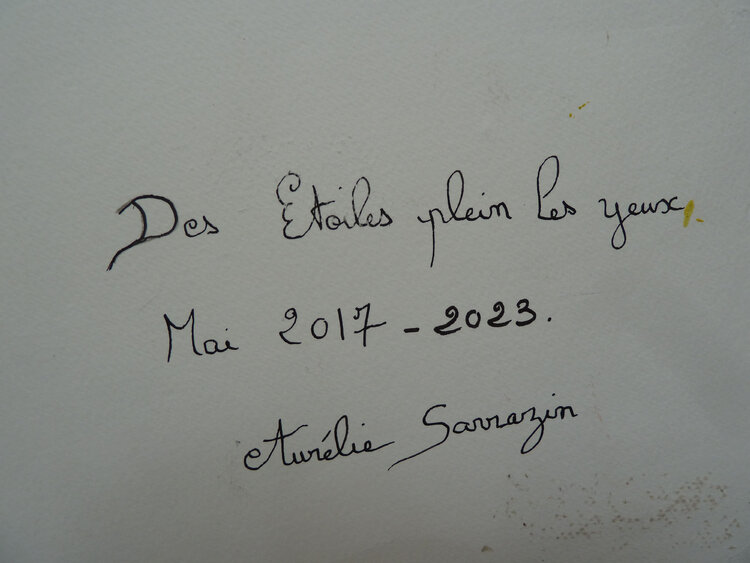 Des Etoiles plein les yeux,
Mai 2017 - 2023.
Aurélie Sarrazin